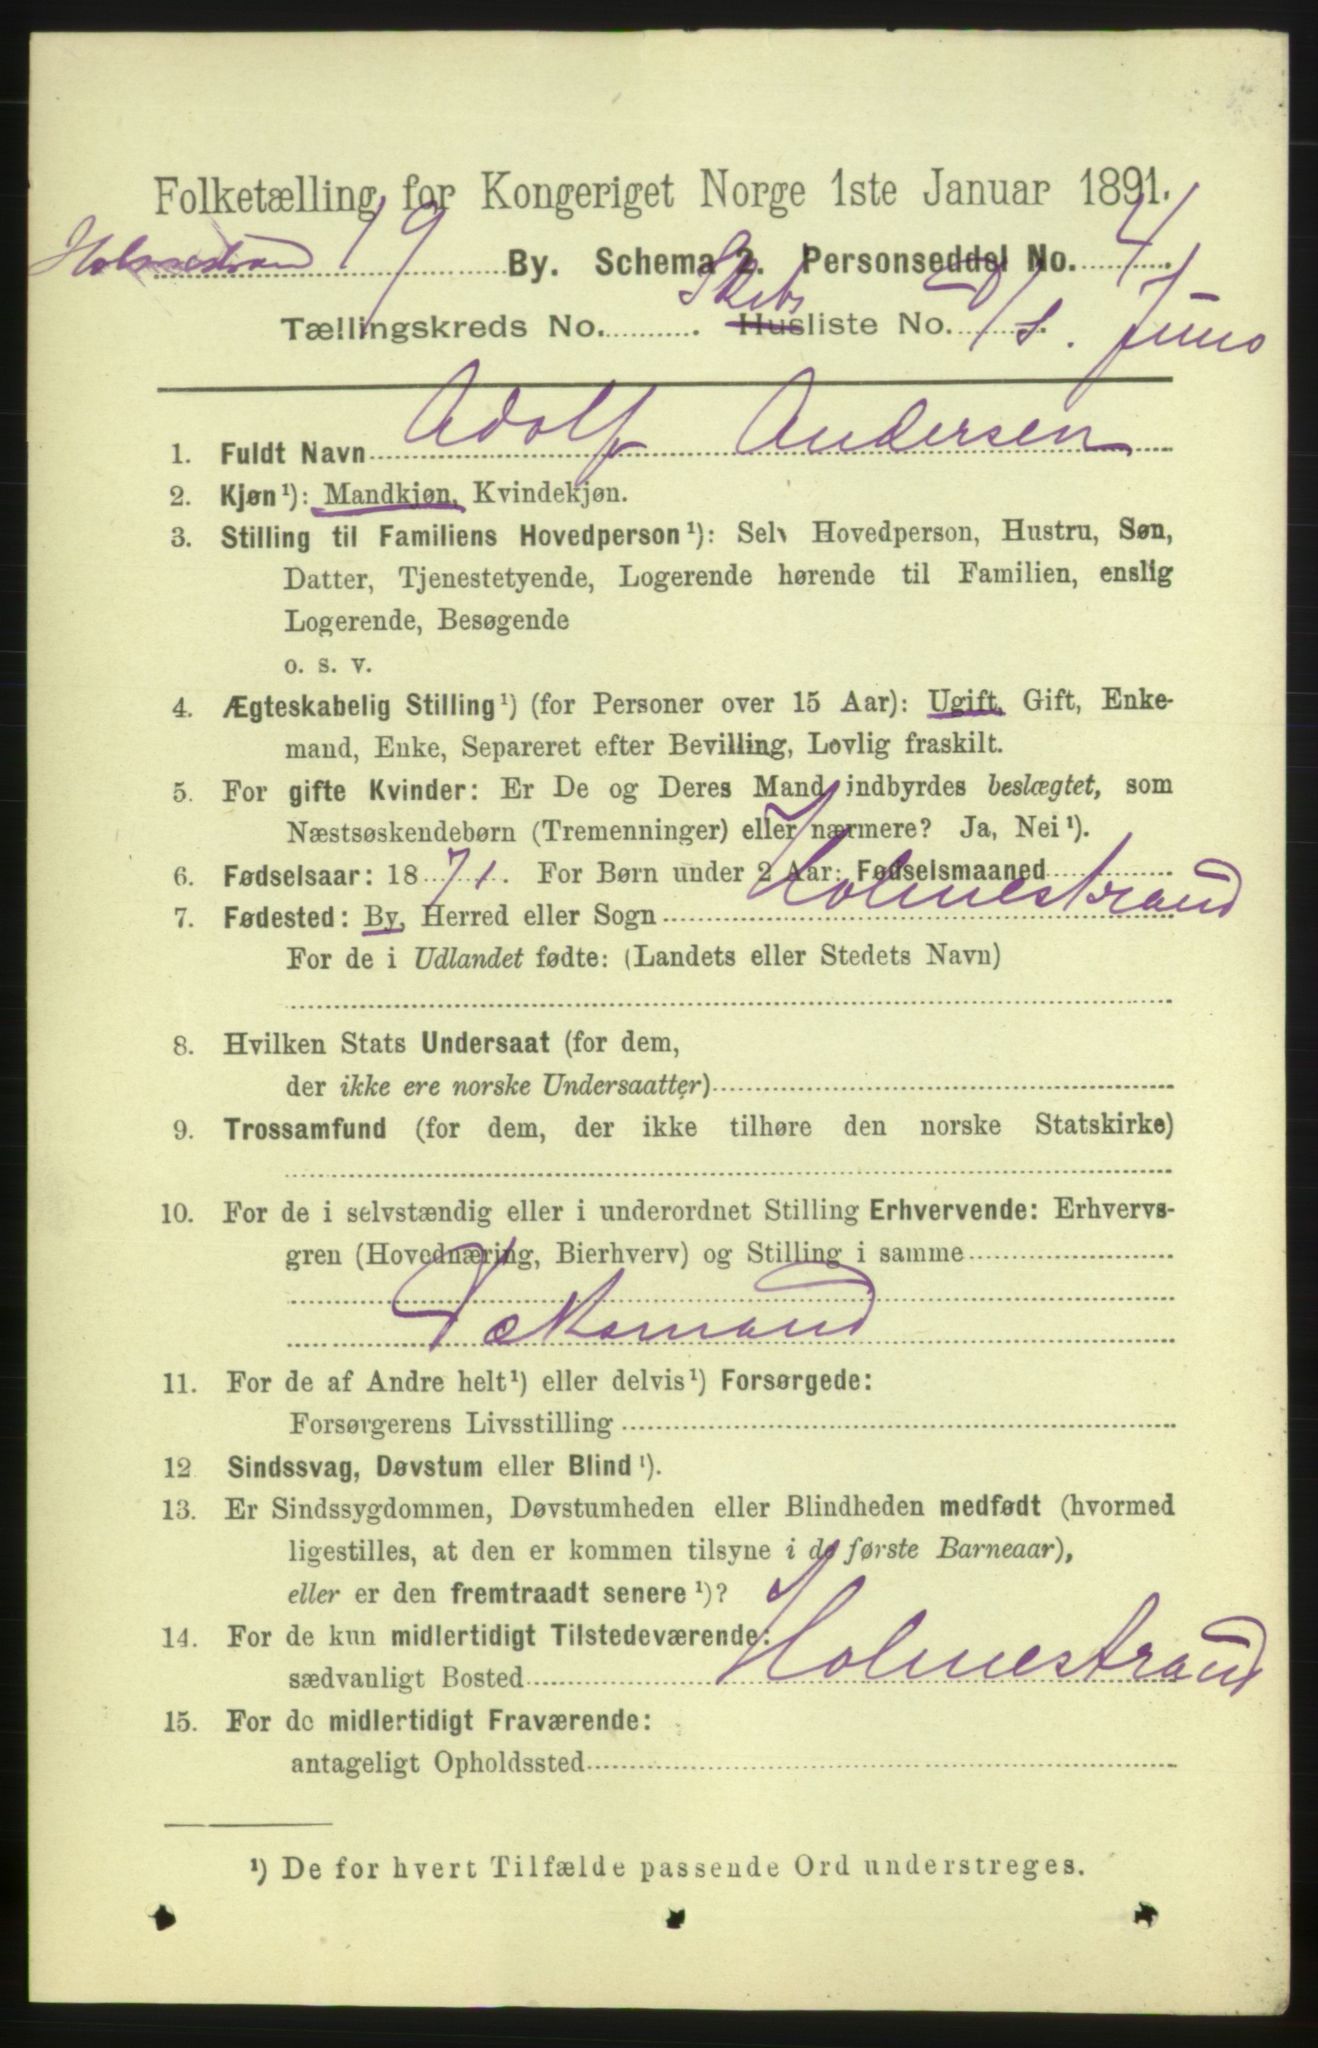 Folketælling for Kongeriget Norge 1ste Januar 1891.
Holmestrand 19 By. Schema 2. Personseddel No. 4
Tællingskreds No. Skibs Husliste No. D/S. Juno
1. Fuldt Navn Adolf Andersen
2. Kjøn¹): Mandkjøn, Kvindekjøn.
3. Stilling til Familiens Hovedperson¹): Selv Hovedperson, Hustru, Søn,
Datter, Tjenestetyende, Logerende hørende til Familien, enslig
Logerende, Besøgende
o. s. v.
4. Ægteskabelig Stilling¹) (for Personer over 15 Aar): Ugift, Gift, Enke-
mand, Enke, Separeret efter Bevilling, Lovlig fraskilt.
5. For gifte Kvinder: Er De og Deres Mand indbyrdes beslægtet, som
Næstsøskendebørn (Tremenninger) eller nærmere? Ja, Nei¹).
6. Fødselsaar: 1871. For Børn under 2 Aar: Fødselsmaaned
7. Fødested: By, Herred eller Sogn Holmestrand
For de i Udlandet fødte: (Landets eller Stedets Navn)
8. Hvilken Stats Undersaat (for dem,
der ikke ere norske Undersaatter)
9. Trossamfund (for dem, der ikke tilhøre den norske Statskirke)
10. For de i selvstændig eller i underordnet Stilling Erhvervende: Erhvervs-
gren (Hovednæring, Bierhverv) og Stilling i samme
Dæksmand
11. For de af Andre helt¹) eller delvis¹) Forsørgede:
Forsørgerens Livsstilling
12 Sindssvag, Døvstum eller Blind¹).
13. Er Sindssygdommen, Døvstumheden eller Blindheden medfødt (hvormed
ligestilles, at den er kommen tilsyne i de første Barneaar),
eller er den fremtraadt senere¹)?
14. For de kun midlertidigt Tilstedeværende:
sædvanligt Bosted Holmestrand
15. For de midlertidigt Fraværende:
antageligt Opholdssted
¹) De for hvert Tilfælde passende Ord understreges.